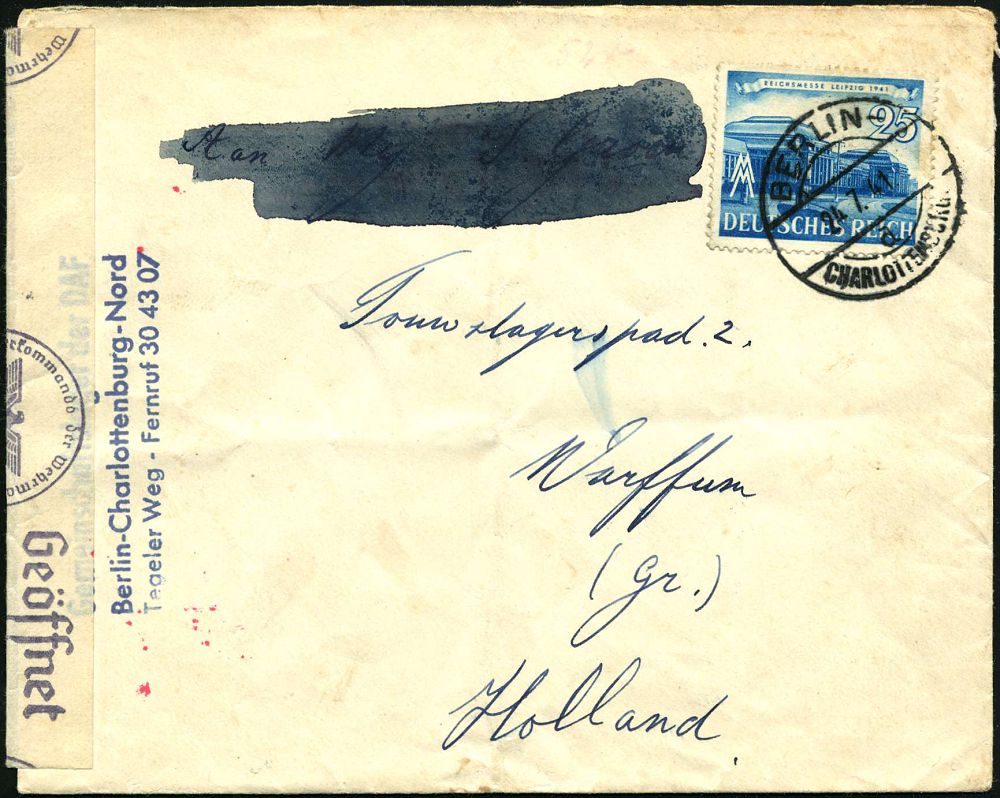 REICHSMESSE LEIPZIG 1941
25
DEUTSCHES REICH
BERLIN-
CHARLOTTENBURG
24.7.41
a
Aan
Touwslagerspad. 2.
Warffum
(Gr.)
Holland.
Gemeinschaftslager der DAF
Berlin-Charlottenburg-Nord
Tegeler Weg - Fernruf 30 43 07
Geöffnet
erkommando der Wehrma
Wehrma